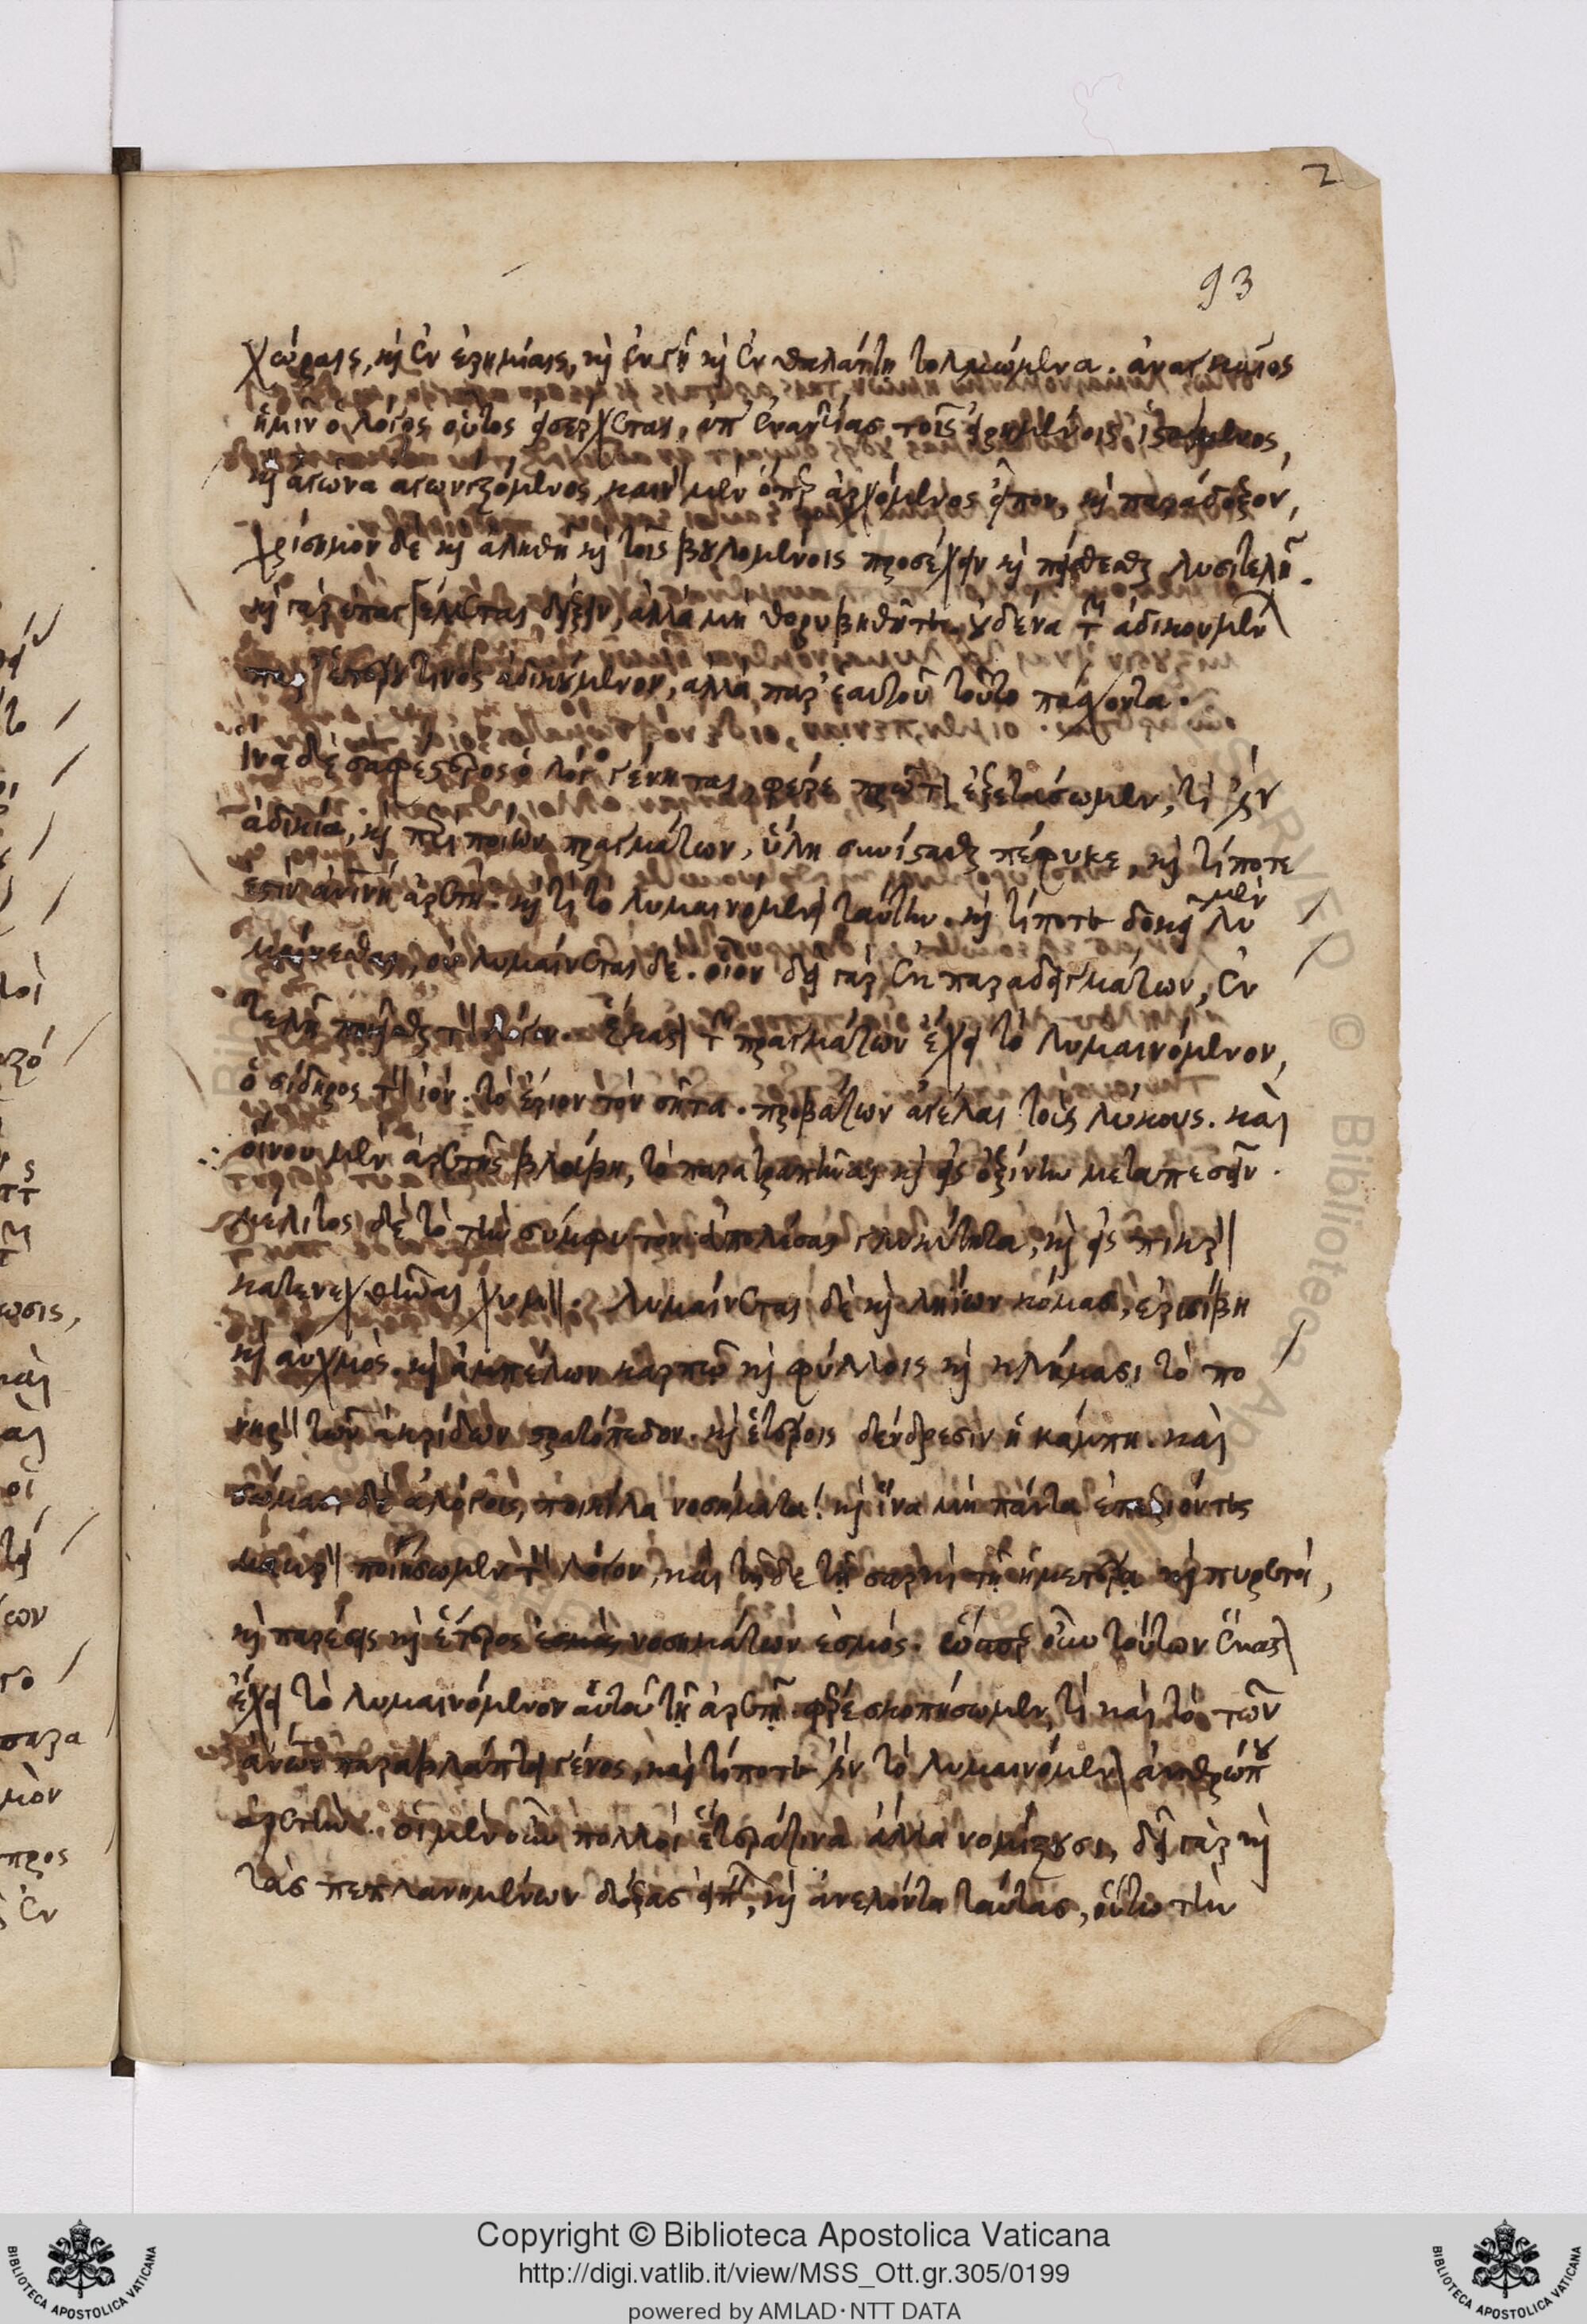 2
93
χώραις, καὶ ἐν ἐρημίαις, καὶ ἐν γῇ καὶ ἐν θαλάττῃ τολμώμενα. ἀναγκαίως
ἡμῖν ὁ λόγος οὗτος εἰσέρχεται, ἀπεναντίας τοῖς εἰρημένοις ἱστάμενος,
καὶ ἀγῶνα ἀγωνιζόμενος καινὸν μὲν ὅπερ ἀρχόμενος εἶπον, καὶ παράδοξον,
χρίσημον δὲ καὶ ἀληθῆ καὶ τοῖς βουλομένοις προσέχειν καὶ πείθεσθαι λυσιτελῆ.
καὶ γὰρ ἐπαγγέλλεται δείξειν, ἀλλὰ μὴ θορυβηθῆτε, οὐδένα τῶν ἀδικουμένων
παρ' ἑτέρου τινὸς ἀδικούμενον, ἀλλὰ παρ' ἑαυτοῦ τοῦτο πάσχοντα.
ἵνα δὲ σαφέστερος ὁ λόγος γένηται, φέρε πρῶτον ἐξετάσωμεν, τί ἐστὶν
ἀδικία, καὶ περὶ ποίων πραγμάτων, ὕλη συνίστασθαι πέφυκε, καὶ τί ποτε
ἐστὶν ἀνθρωπίνη ἀρετὴ. καὶ τί τὸ λυμαινόμενον ταύτην. καὶ τί ποτε δοκεῖ μὲν λυ
μαίνεσθαι, οὐ λυμαίνεται δέ. οἷον δεῖ γὰρ ἐκ παραδειγμάτων, ἐν
τελῆ ποιῆσαι τὸν λόγον. ἕκαστον τῶν πραγμάτων ἔχει τὸ λυμαινόμενον,
ὁ σίδηρος τὸν ἰόν. τὸ ἔριον τὸν σῆτα. προβάτων ἀγέλαι τοὺς λύκους. καὶ
οἴνου μὲν ἀρετῆς βλάβη, τὸ παρατραπῆναι καὶ εἰς ὀξίνην μεταπεσεῖν.
μέλιτος δὲ τὸ τὴν σύμφυτον ἀπολέσαι γλυκύτητα, καὶ εἰς πικρὸν
κατενεχθῆναι χυμόν. λυμαίνεται δὲ καὶ ληΐων κόμας, ἐρισίβη
καὶ αὐχμὸς. καὶ ἀμπέλων καρπῷ καὶ φύλλοις καὶ κλήμασι τὸ πο
νηρὸν τῶν ἀκρίδων στρατόπεδον. καὶ ἑτέροις δένδρεσιν ἡ κάμπη. καὶ
σώμασι δὲ ἀλόγοις, ποικίλα νοσήματα! καὶ ἵνα μὴ πάντα ἐπεξιόντες
μακρὸν ποιήσωμεν τὸν λόγον, καὶ τῇδε τῇ σαρκὶ τῇ ἡμετέρᾳ καὶ πυρετοί,
καὶ παρέσεις καὶ ἕτερος νοσημάτων ἐσμός. ὥσπερ οὖν τούτων ἕκαστον
ἔχει τὸ λυμαινόμενον αὐτοῦ τῇ ἀρετῇ. φέρε σκοπήσωμεν, τί καὶ τὸ τῶν
ἀνθρώπων παραβλάπτει γένος, καὶ τί ποτε ἐστὶν τὸ λυμαινόμενον ἀνθρώπου
ἀρετήν. οἱ μὲν οὖν πολλοὶ ἕτερα τινα ἀλλὰ νομίζουσι, δεῖ γὰρ καὶ
τὰς πεπλανημένων δόξας εἰπεῖν, καὶ ἀνελόντα ταύτας, οὕτω τὴν
Copyright © Biblioteca Apostolica Vaticana
http://digi.vatlib.it/view/MSS_Ott.gr.305/0199
powered by AMLAD·NTT DATA